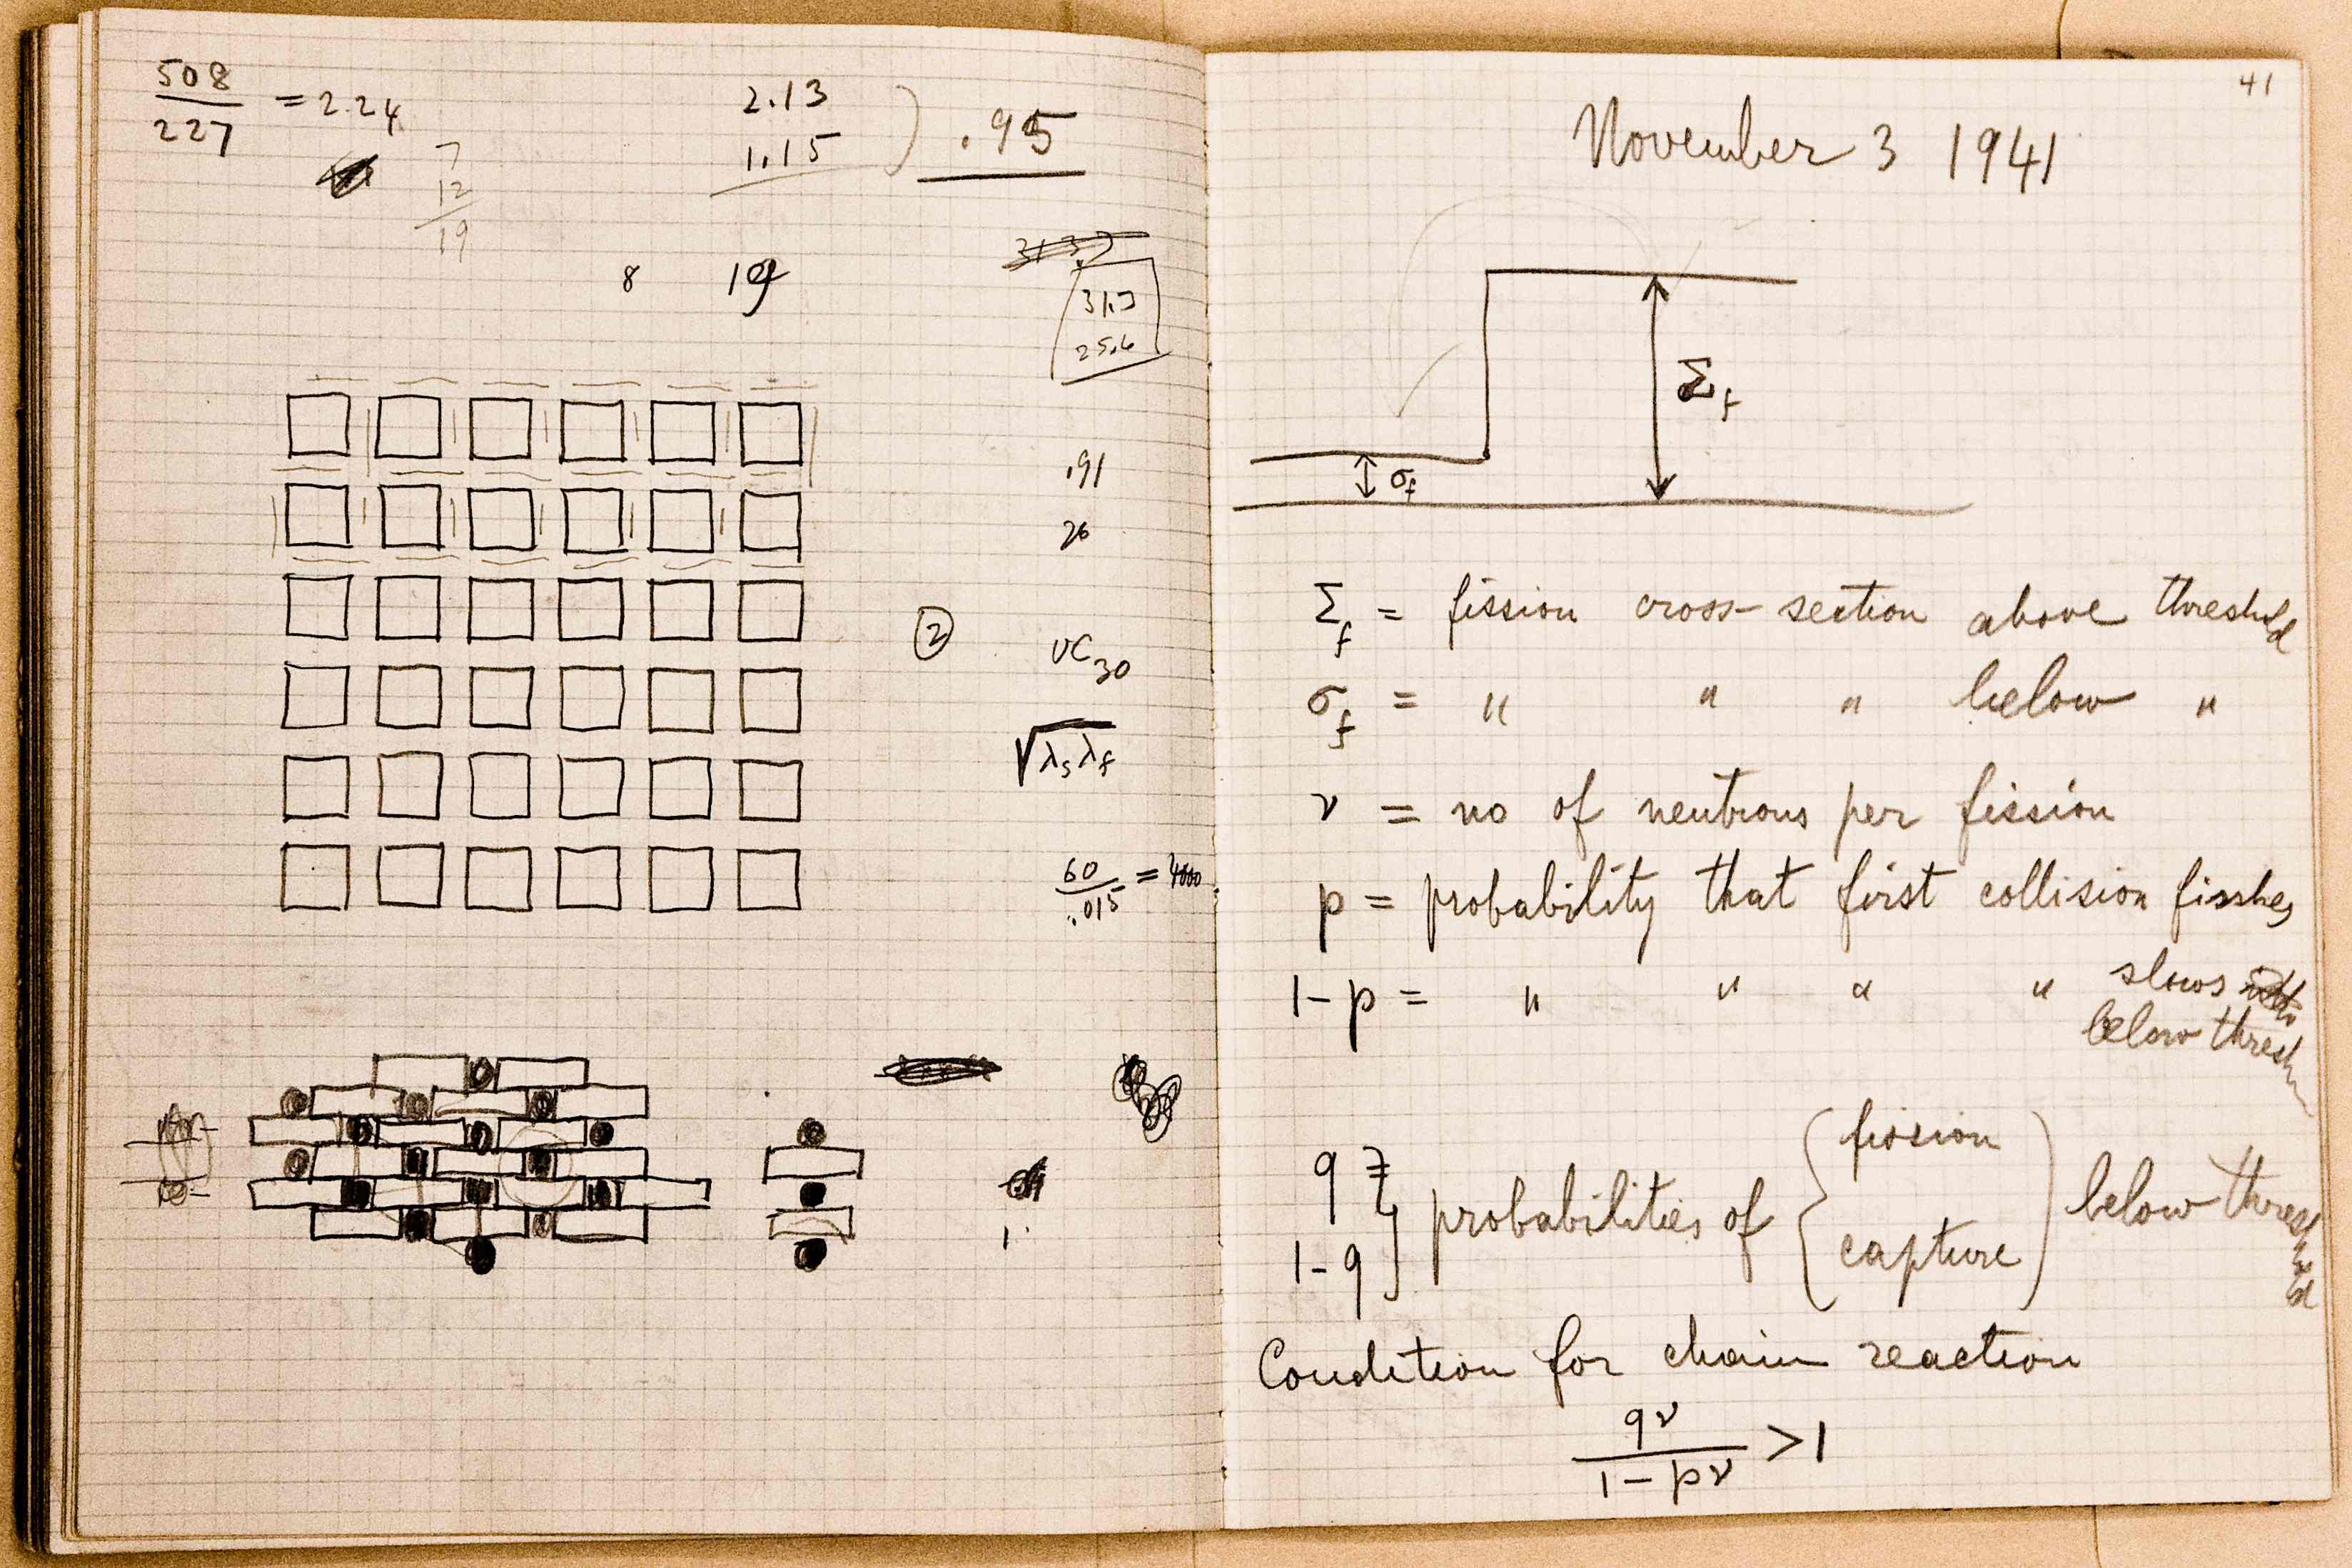 508
227
= 2.24
7
12
19
2.13
1.15
.95
8
31.3
25.6
.91
26
2
UC30
√λsλf
60
.015
=
1
41
November 3 1941
Σf
σf
Σf = fission cross-section above threshold
σf = " " " below "
ν = no of neutrons per fission
p = probability that first collision
1-p = " " " " slows
below thresh
q
1-q
} probabilities of { fission
capture ) below threshold
Condition for chain reaction
qν
1-pν
> 1